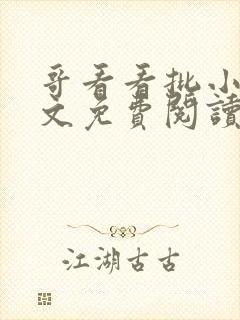 哥看看批小
文免費閱讀
江湖古古